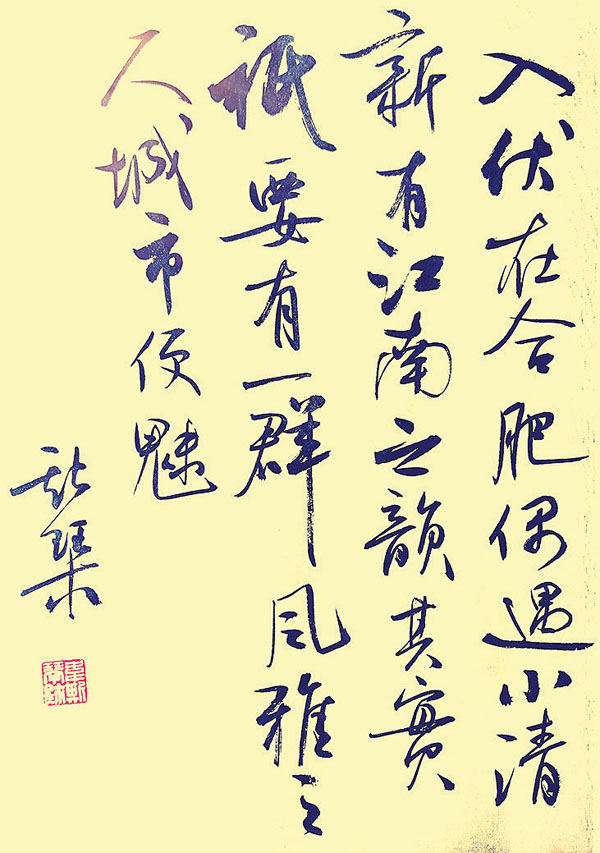 入伏在合肥偶遇小清
新有江南之韻其實
衹要有一群風雅之
人城市便魅